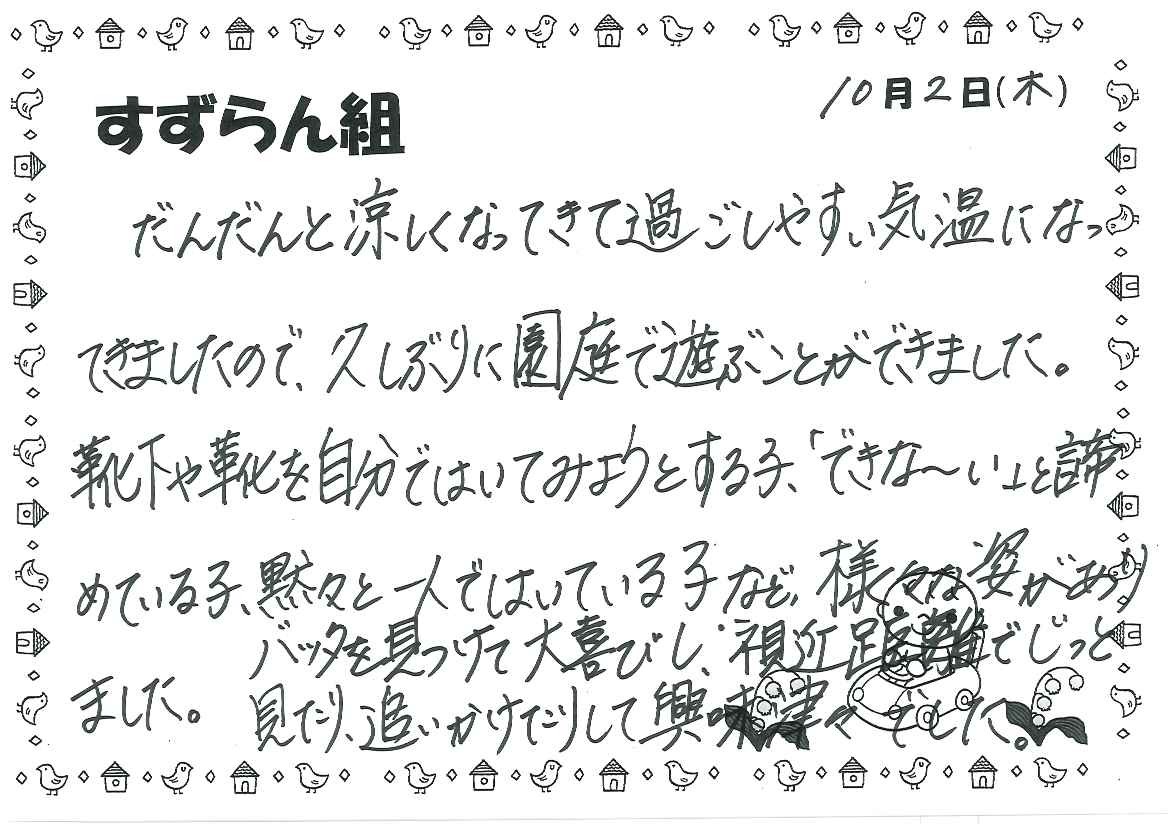 すずらん組
10月2日(木)
だんだんと涼しくなってきて過ごしやすい気温になっ
てきましたので、久しぶりに園庭で遊ぶことができました。
靴下や靴を自分ではいてみようとする子、「できな〜い」と諦
めている子、黙々と一人ではいている子など、様々な姿があり
ました。
バッタを見つけて大喜びし、近距離でじっと
見たり、追いかけたりして興味津々でした。